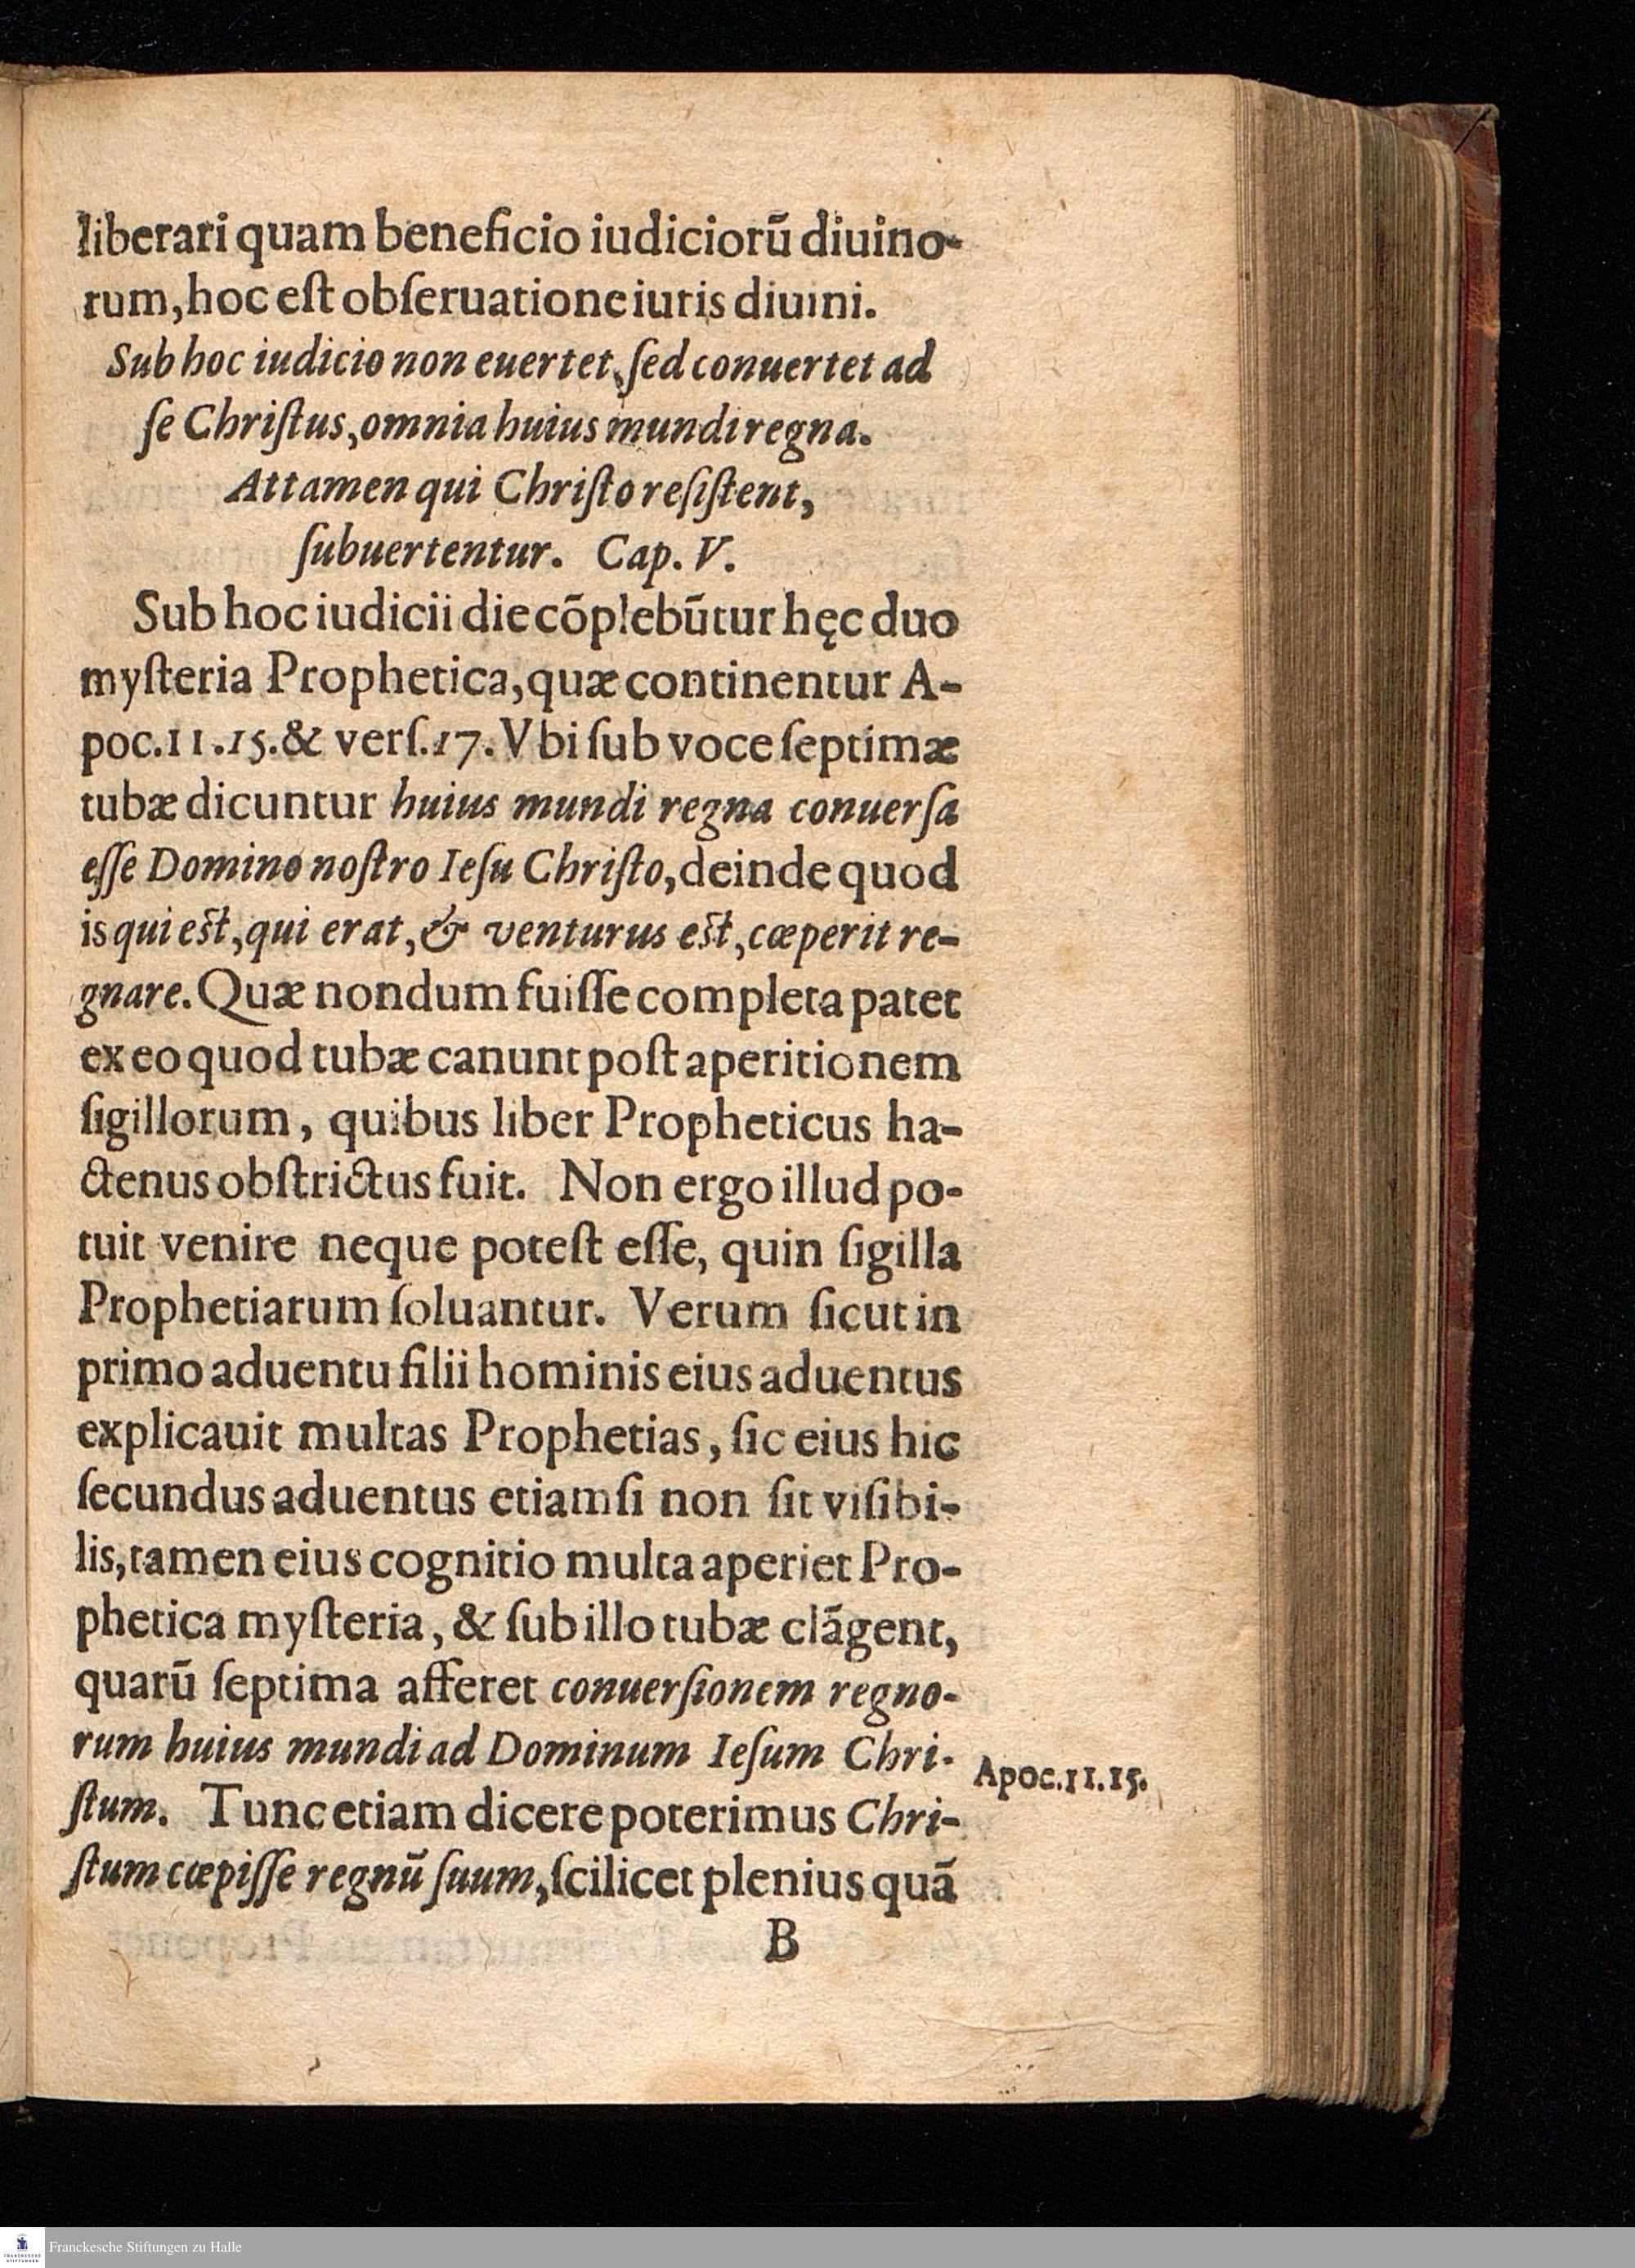 liberari quam beneficio iudiciorū diuino-
rum, hoc eſt obſeruatione iuris diuini.
Sub hoc iudicio non euertet, ſed conuertet ad
ſe Chriſtus, omnia huius mundi regna.
Attamen qui Chriſto reſiſtent,
ſubuertentur. Cap. V.
Sub hoc iudicii die cōplebūtur hęc duo
myſteria Prophetica, quæ continentur A-
poc.11.15.& verſ.17. Vbi ſub voce ſeptimæ
tubæ dicuntur huius mundi regna conuerſa
eſſe Domino noſtro Ieſu Chriſto, deinde quod
is qui eſt, qui erat, & venturus eſt, cœperit re-
gnare. Quæ nondum fuiſſe completa patet
ex eo quod tubæ canunt poſt aperitionem
ſigillorum, quibus liber Propheticus ha-
ctenus obſtrictus fuit. Non ergo illud po-
tuit venire neque poteſt eſſe, quin ſigilla
Prophetiarum ſoluantur. Verum ſicut in
primo aduentu filii hominis eius aduentus
explicauit multas Prophetias, ſic eius hic
ſecundus aduentus etiamſi non ſit viſibi-
lis, tamen eius cognitio multa aperiet Pro-
phetica myſteria, & ſub illo tubæ clāgent,
quarū ſeptima afferet conuerſionem regno-
rum huius mundi ad Dominum Ieſum Chri-
Apoc.11.15.
ſtum. Tunc etiam dicere poterimus Chri-
ſtum cœpiſſe regnū ſuum, ſcilicet plenius quā
B
FRANCKESCHE STIFTUNGEN
Franckesche Stiftungen zu Halle